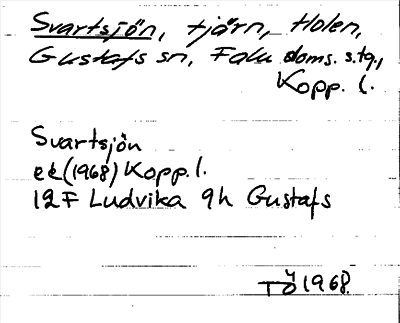 Svartsjön, tjärn, Holen,
Gustafs sn, Falu doms. s.tg.,
Kopp. l.
Svartsjön
ek (1968) Kopp. l.
12F Ludvika 9h Gustafs
TÖ 1968